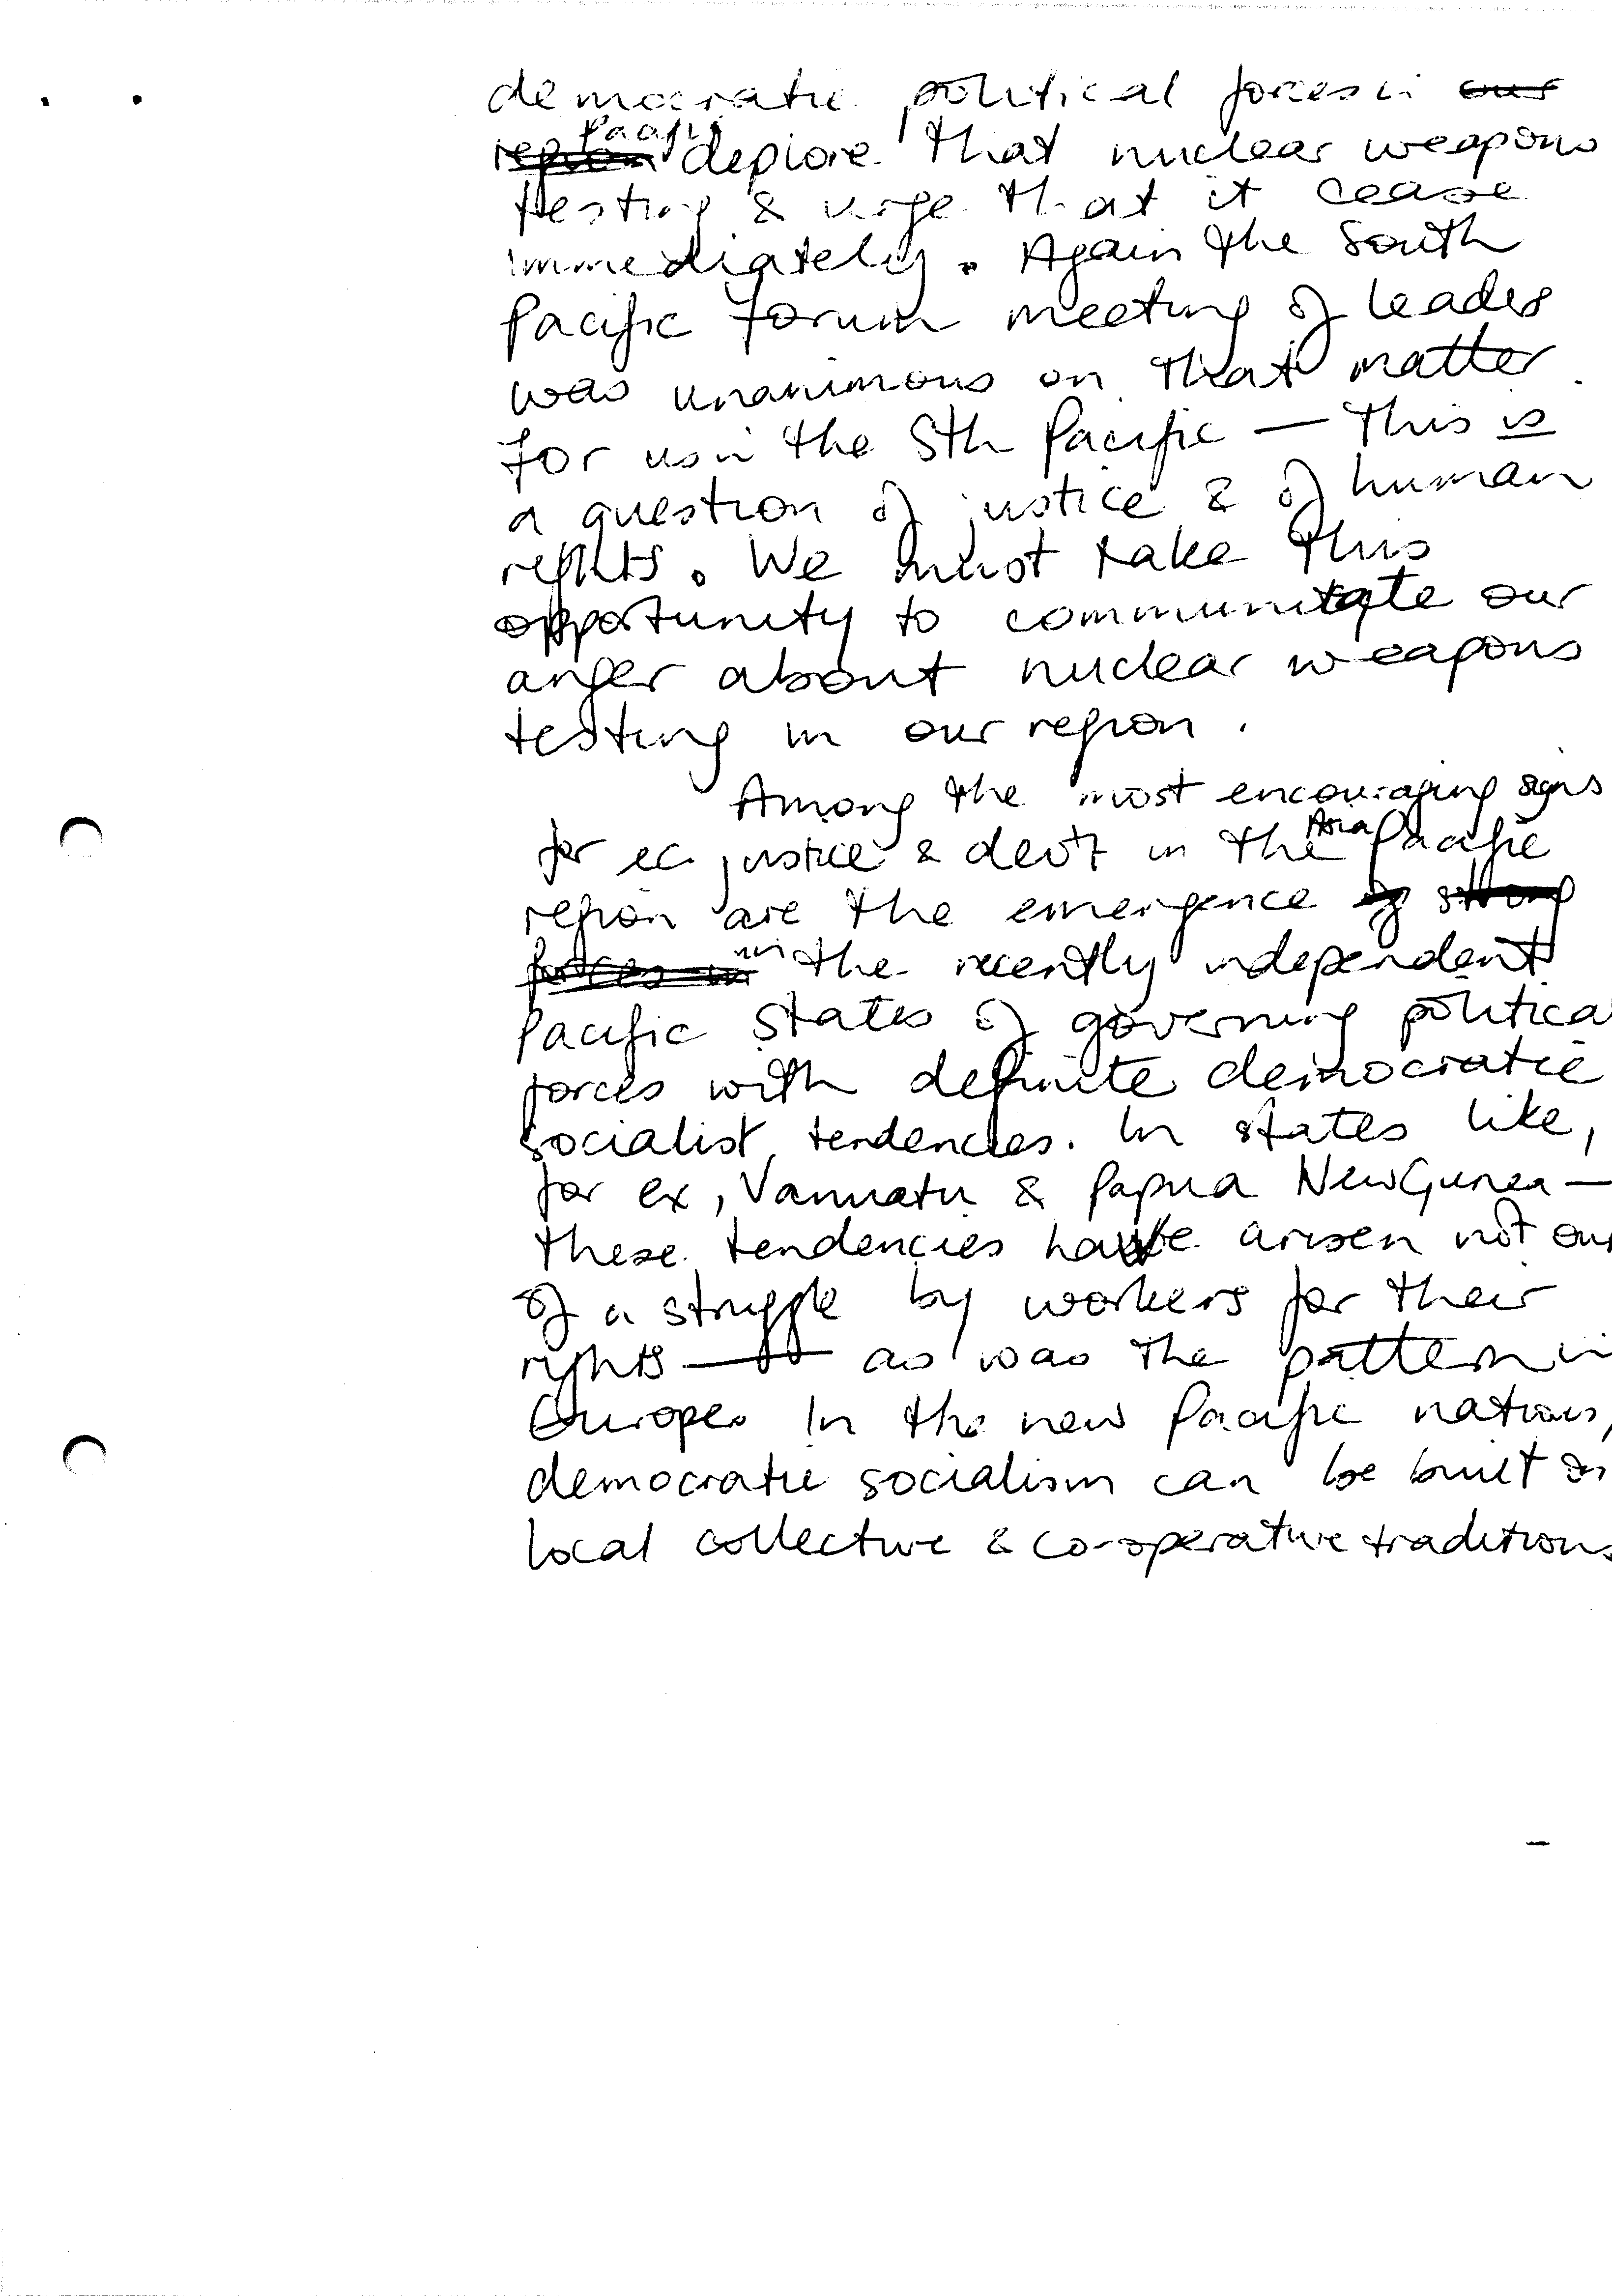 democratic political forces in our
region Pacific deplore that nuclear weapons
testing & urge that it cease
immediately. Again the South
Pacific Forum meeting of leaders
was unanimous on that matter.
For us in the Sth Pacific — this is
a question of justice & of human
rights. We must take this
opportunity to communicate our
anger about nuclear weapons
testing in our region.
Among the most encouraging signs
for ec. justice & dev't in the Asia Pacific
region are the emergence of strong
forces in in the recently independent
Pacific States of governing politica
forces with definite democratic
socialist tendencies. In states like,
for ex, Vanuatu & Papua New Guinea —
these tendencies have arisen not ou
of a struggle by workers for their
rights — as was the pattern in
Europe. In the new Pacific nations,
democratic socialism can be built on
local collective & co-operative traditions